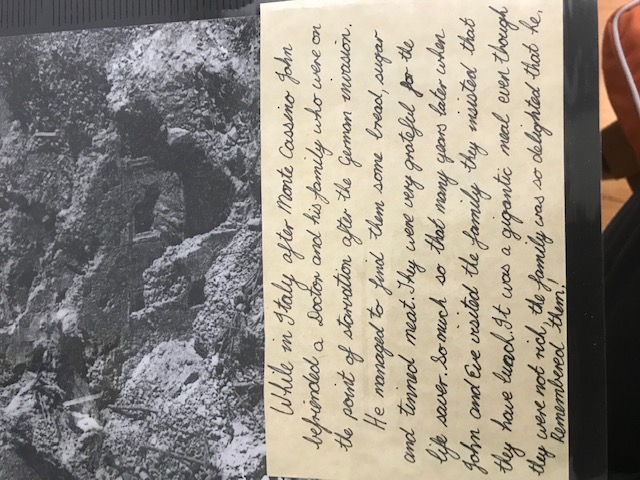 While in Italy after Monte Cassino John
befriended a Doctor and his family who were on
the point of starvation after the German invasion.
He managed to find them some bread, sugar
and tinned meat. They were very grateful for the
life saver. So much so that many years later when
John and Eve visited the family they insisted that
they have lunch. It was a gigantic meal even though
they were not rich, the family was so delighted that he,
Remembered them!